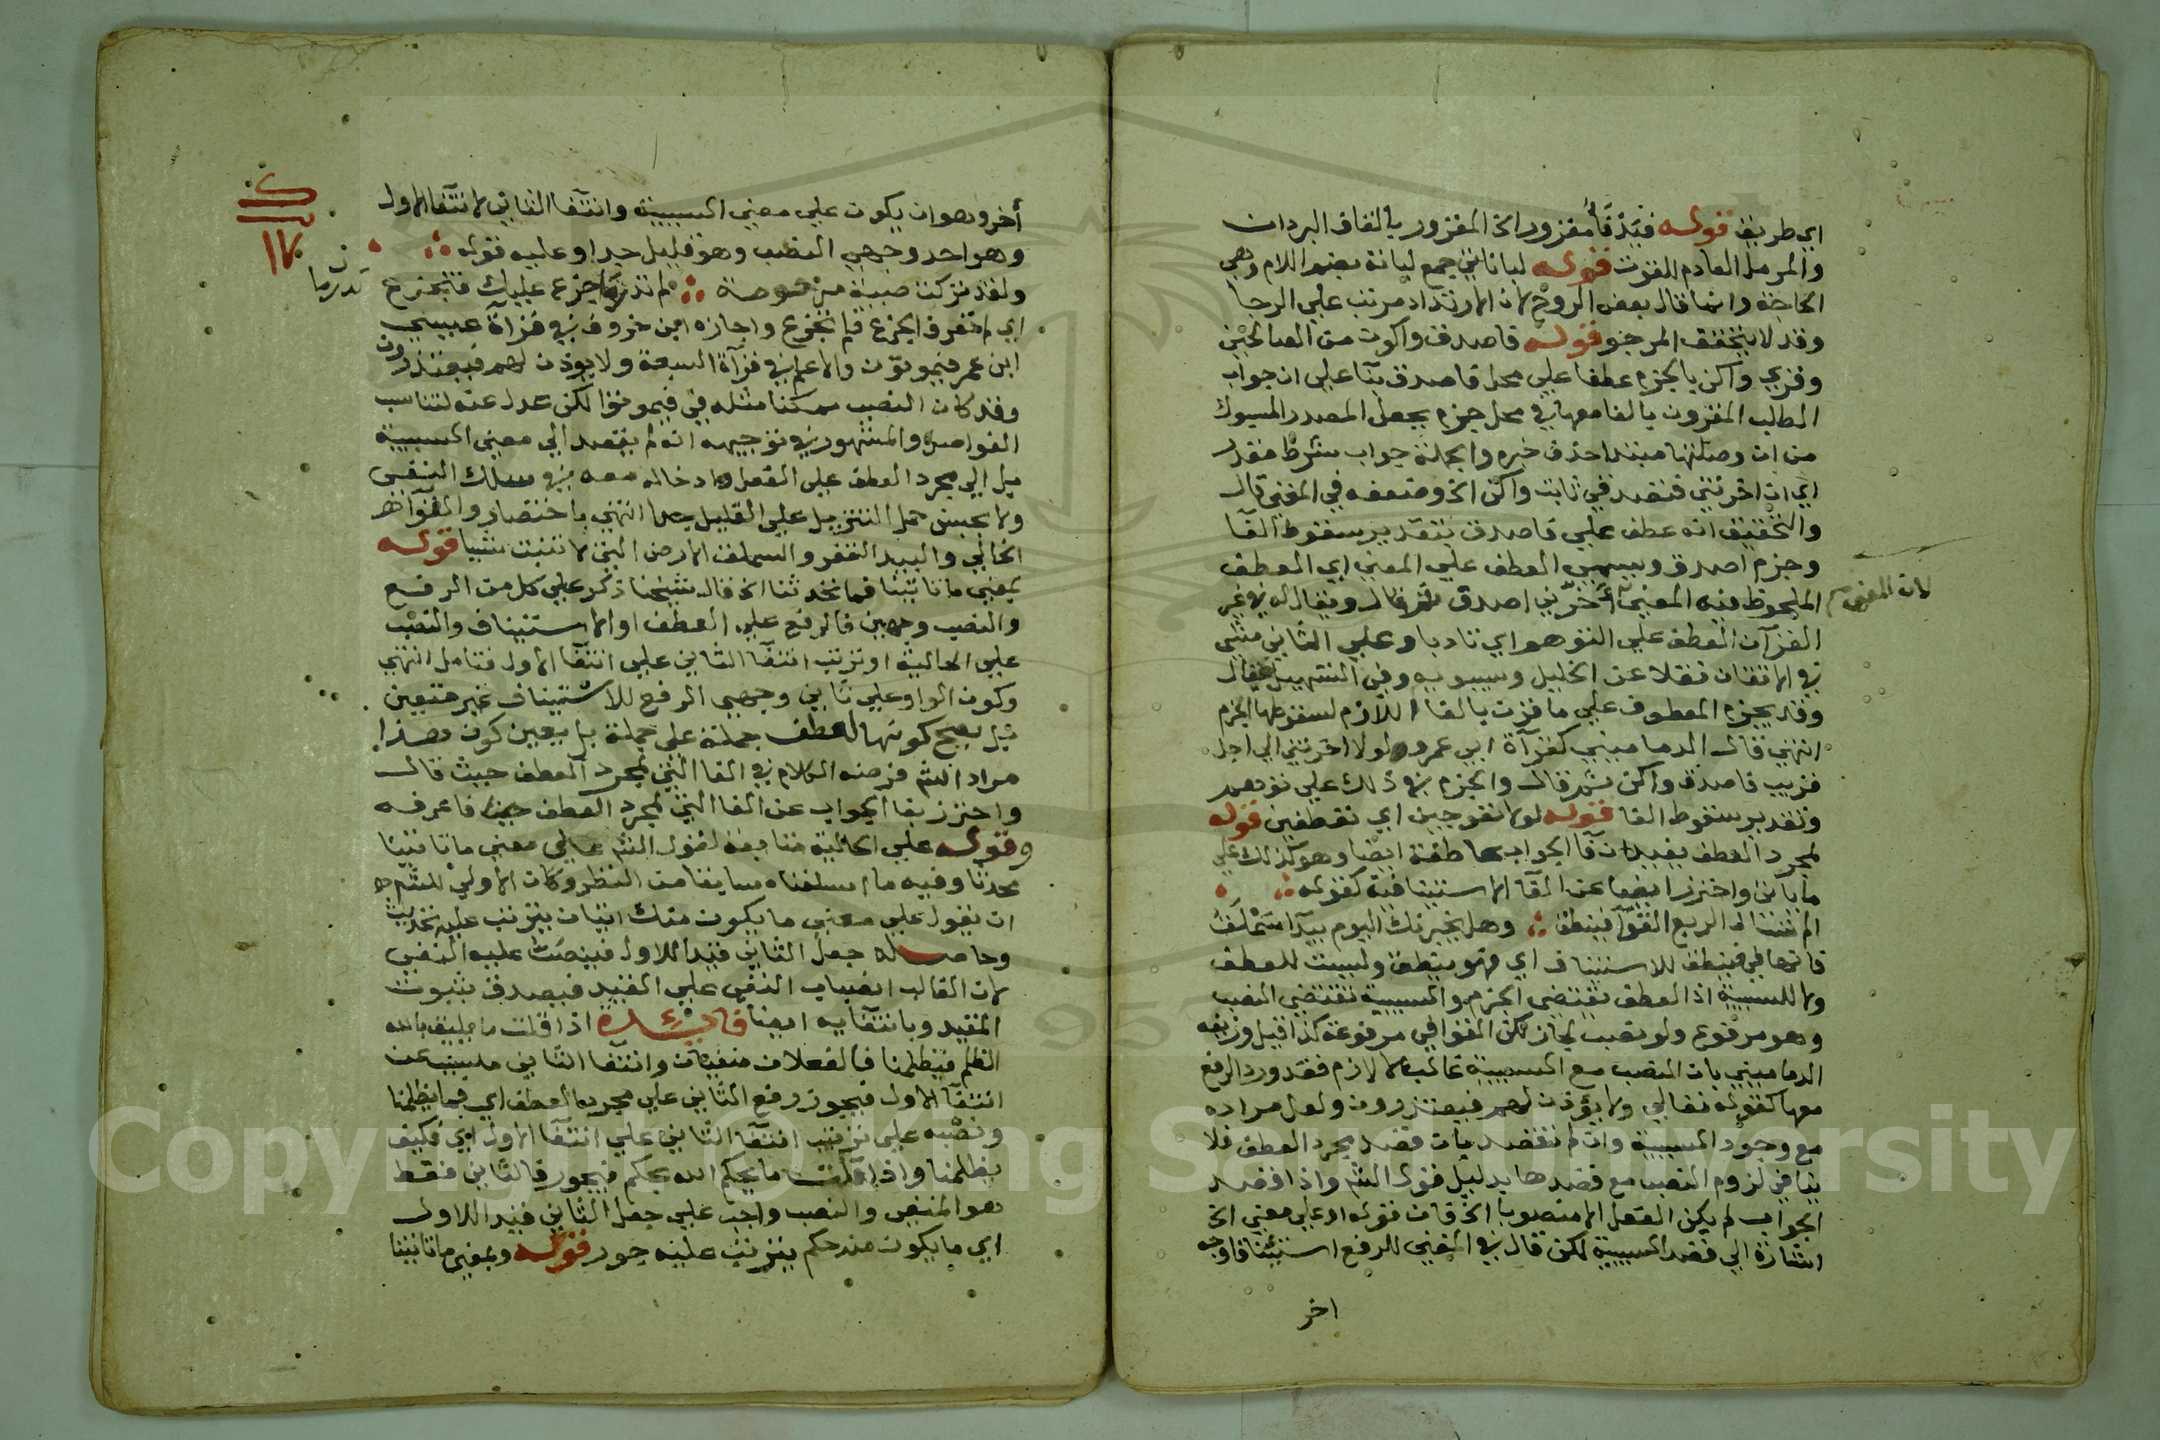 اي طريف قوله فيدفا مقرور الخ المقرور بالقاف البردان
والمرمل العادم القوت قوله لباناتي جمع لبانة بضم اللام وهي
الحاجة وانما قال بعض الروح لان الارتداد مرتب علي الرجا
وقد لا يتحقق المرجو قوله فاصدق واكون من الصالحين
وقري واكن بالجزم عطفا علي محل فاصدق بنا علي ان جواب
الطلب المقرون بالفا معها في محل جزم بجعل المصدر المسبوك
من ان وصلتها مبتدا حذف خبره والجملة جواب شرط مقدر
اي ان اخرتني فتصدقي ثابت واكن الخ وضعفه في المغني قال
والتحقيق انه عطف علي فاصدق بتقدير سقوط الفا
وجزم اصدق ويسمي العطف علي المعني اي العطف
الملحوظ فيه المعني لان المعني اخرني اصدق ثم قال ويقال له في غير
القران العطف علي التوهم اي تادبا وعلي الثاني مشي
في الاتقان نقلا عن الخليل وسيبويه وفي التسهيل فقال
وقد يجزم المعطوف علي ما قرن بالفا اللازم لسقوطها الجزم
انتهي قال الدماميني كقراة ابي عمرو لولا اخرتني الي اجل
قريب فاصدق واكن ثم قال والجزم في ذلك علي توهم
وتقدير سقوط الفا قوله لولا تعوجين اي تعطفين قوله
لمجرد العطف يفيد ان فا الجواب عاطفة ايضا وهو كذلك علي
ما ياتي واحترز ايضا عن الفا الاستينافية كقوله
الم تسال الربع القوا فينطق وهل يخبرنك اليوم بيدا سملق
فانها في فينطق للاستيناف اي فهو ينطق وليست للعطف
ولا للسببية اذ العطف يقتضي الجزم والسببية تقتضي النصب
وهو مرفوع ولو نصب لجاز لكن القوافي مرفوعة كذا قيل وزيفه
الدماميني بان النصب مع السببية غالب لا لازم فقد ورد الرفع
معها كقوله تعالي ولا يؤذن لهم فيعتذرون ولعل مراده
مع وجود السببية وان لم تقصد بان قصد مجرد العطف فلا
ينافي لزوم النصب مع قصدها بدليل قول الش واذا قصد
الجواب لم يكن الفعل الا منصوبا الخ فان قوله او علي معني الخ
اشارة الي قصد السببية لكن قال في المغني للرفع استئنافا وجه
اخر
لان المعني
اخر وهو ان يكون علي معني السببية وانتفا الثاني لانتفا الاول
وهو احد وجهي النصب وهو قليل جدا وعليه قوله
ولقد تركت صبية مرحومة لم تدر ما جزع عليك فتجزع
اي لم تعرف الجزع فلم تجزع واجازه ابن خروف في قراة عيسي
ابن عمر فيموتون والاعلم في قراة السبعة ولا يوذن لهم فيعتذرون
وقد كان النصب ممكنا مثله في فيموتوا لكن عدل عنه لتناسب
الفواصل والمشهور في توجيهه انه لم يقصد الي معني السببية
بل الي مجرد العطف علي الفعل وادخاله معه في سلك النفي
ولا يحسن حمل التنزيل علي القليل جدا انتهي باختصار والقوا
الخالي والبيدا القفر والسملق الارض التي لا تنبت شيا قوله
بمعني ما تاتينا فما تحدثنا الخ قال شيخنا ذكر علي كل من الرفع
والنصب وجهين فالرفع علي العطف او الاستيناف والنصب
علي الحالية او ترتب انتفا الثاني علي انتفا الاول فتامل انتهي
وكون الواو علي ثاني وجهي الرفع للاستيناف غير متعين
بل يصح كونها لعطف جملة علي جملة بل يتعين كون هذا
مراد الش فرضه الكلام في الفا التي لمجرد العطف حيث قال
واحترز بفا الجواب عن الفا التي لمجرد العطف فاعرفه
وقوله علي الحالية متابعة لقول الش علي معني ما تاتينا
محدثا وفيه ما اسلفناه سابقا من النظر وكان الاولي للش
ان يقول علي معني ما يكون منك اتيان يترتب عليه تحديث
وحاصله جعل الثاني قيدا للاول فينصب عليه النفي
لان الغالب انصباب النفي علي القيد فيصدق بثبوت
المقيد وبانتفايه ايضا فائدة اذا قلت ما يليق بالله
الظلم فيظلمنا فالفعلان منفيان وانتفا الثاني مسبب عن
انتفا الاول فيجوز رفع الثاني علي مجرد العطف اي فما يظلمنا
ونصبه علي ترتب انتفا الثاني علي انتفا الاول اي فكيف
يظلمنا واذا قلت ما يحكم الله بحكم فيجور فالثاني فقط
هو المنفي والنصب واجب علي جعل الثاني قيدا للاول
اي ما يكون منه حكم يترتب عليه جور قوله وبمعني ما تاتينا
تدر ما
١٧